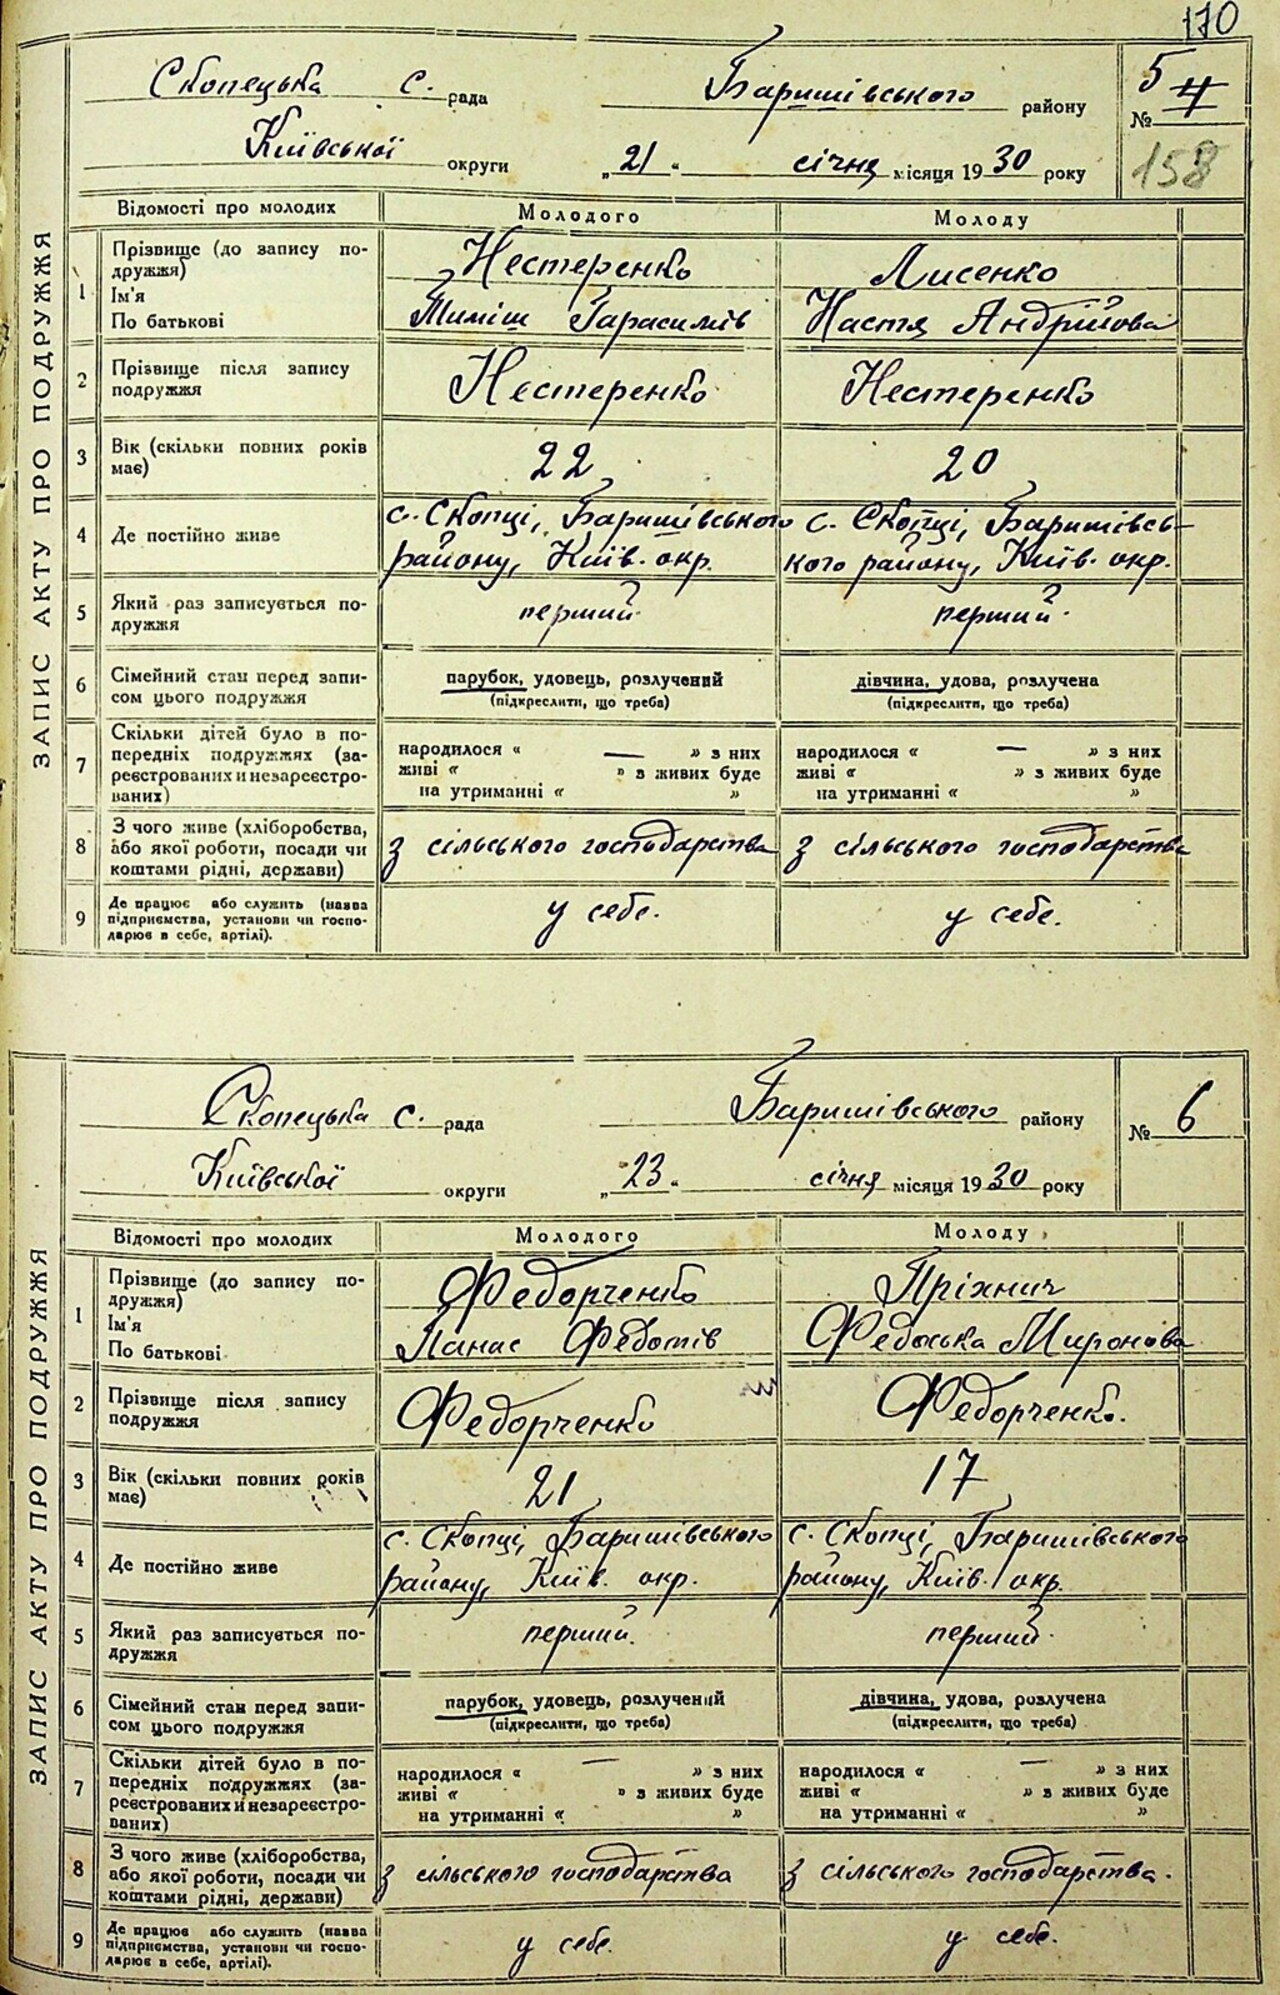 170
Скопецька с. рада Баришівського району № 5
Київської округи „21“ січня місяця 1930 року 158
ЗАПИС АКТУ ПРО ПОДРУЖЖЯ
Відомості про молодих Молодого Молоду
1 Прізвище (до запису по-
дружжя) Нестеренко Лисенко
Ім'я
По батькові Тиміш Гарасимів Настя Андрійова
2 Прізвище після запису
подружжя Нестеренко Нестеренко
3 Вік (скільки повних років
має) 22 20
4 Де постійно живе
с. Скопці, Баришівського с. Скопці, Баришівсь-
району, Київ. окр. кого району, Київ. окр.
5 Який раз записується по-
дружжя перший перший
6 Сімейний стан перед запи- парубок, удовець, розлучений дівчина, удова, розлучена
сом цього подружжя (підкреслити, що треба) (підкреслити, що треба)
7 Скільки дітей було в по-
передніх подружжях (за- народилося « — » з них народилося « — » з них
реєстрованих и незареєстро- живі « » з живих буде живі « » з живих буде
ваних) на утриманні « » на утриманні « »
8 З чого живе (хліборобства,
або якої роботи, посади чи з сільського господарства з сільського господарства
коштами рідні, держави)
9 Де працює або служить (назва
підприємства, установи чи госпо- у себе. у себе.
дарює в себе, артілі).
Скопецька с. рада Баришівського району № 6
Київської округи „23“ січня місяця 1930 року
ЗАПИС АКТУ ПРО ПОДРУЖЖЯ
Відомості про молодих Молодого Молоду
1 Прізвище (до запису по-
дружжя) Федорченко Пріхнич
Ім'я
По батькові Панас Федотів Федоська Миронова
2 Прізвище після запису
подружжя Федорченко Федорченко.
3 Вік (скільки повних років
має) 21 17
4 Де постійно живе
с. Скопці, Баришівського с. Скопці, Баришівського
району, Київ. окр. району, Київ. окр.
5 Який раз записується по-
дружжя перший. перший
6 Сімейний стан перед запи- парубок, удовець, розлучений дівчина, удова, розлучена
сом цього подружжя (підкреслити, що треба) (підкреслити, що треба)
7 Скільки дітей було в по-
передніх подружжях (за- народилося « — » з них народилося « — » з них
реєстрованих и незареєстро- живі « » з живих буде живі « » з живих буде
ваних) на утриманні « » на утриманні « »
8 З чого живе (хліборобства,
або якої роботи, посади чи з сільського господарства з сільського господарства.
коштами рідні, держави)
9 Де працює або служить (назва
підприємства, установи чи госпо- у себе. у себе.
дарює в себе, артілі).